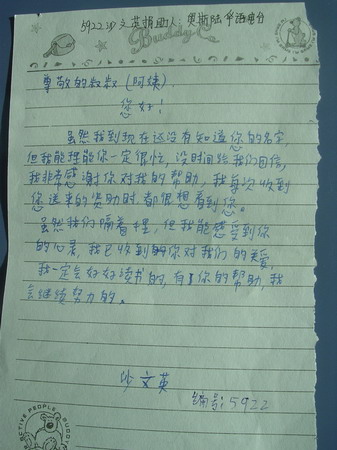 5922沙文英捐助人:奥斯陆华语电台
Buddy Co
尊敬的叔叔(阿姨)
您好!
虽然我到现在还没有知道您的名字,
但我能理解你一定很忙,没时间给我们回信,
我非常感谢你对我的帮助,我每次收到
您送来的资助时都很想看到您。
虽然我们隔着 ,但我能感受到你
的心灵,我已收到你对我们的关爱,
我一定会好好读书的,有了你的帮助,我
会继续努力的。
沙文英
编号:5922
ACTIVE PEOPLE BUDDY